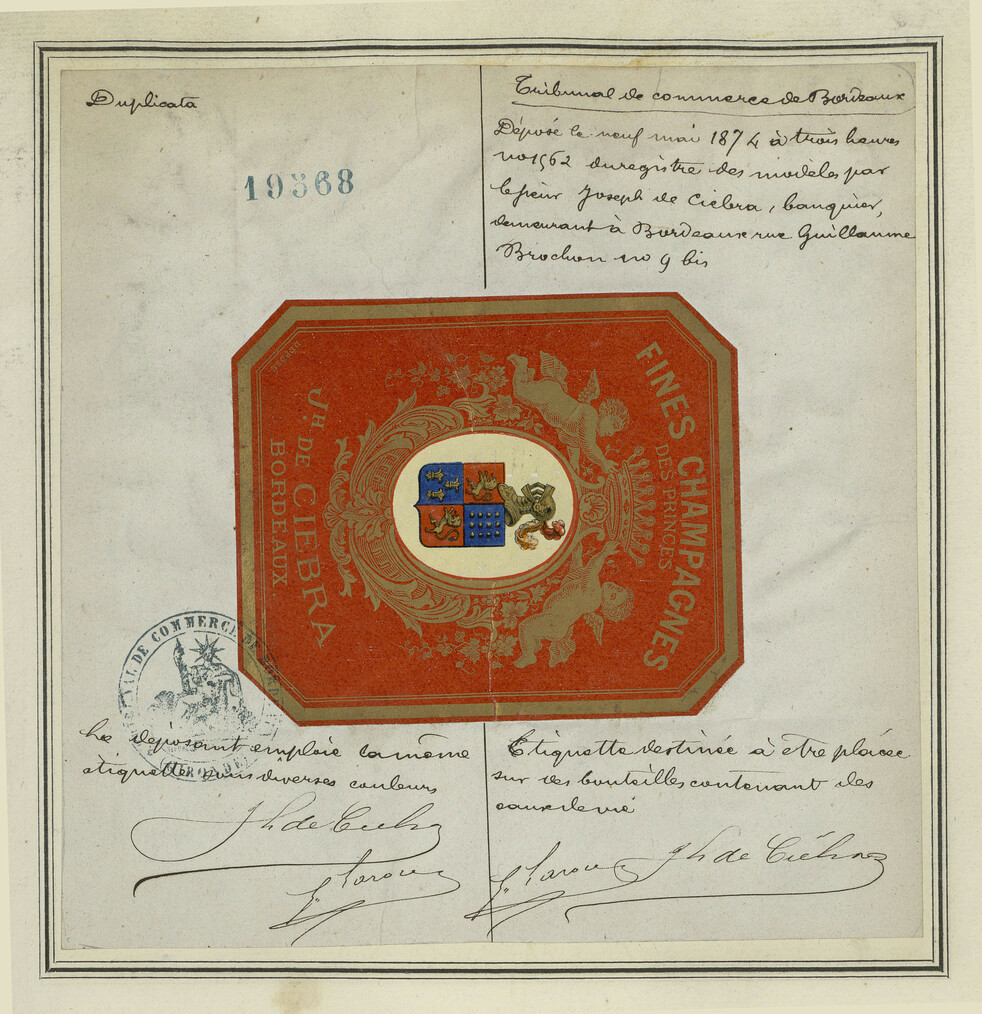 Duplicata
19368
Tribunal de commerce de Bordeaux
Déposé le neuf mai 1874 à trois heures
no 1562 du registre des modèles par
le sieur Joseph de Ciebra, banquier,
demeurant à Bordeaux rue Guillaume
Brochon no 9 bis
FINES CHAMPAGNES
DES PRINCES
JH. DE CIEBRA
BORDEAUX.
TRIBUNAL DE COMMERCE DE BORD
Le déposant emploie la même
etiquette sous diverses couleurs
Jh de Ciebra
Etiquette destinée à etre placée
sur des bouteilles contenant des
eaux de vie
Jh de Ciebra